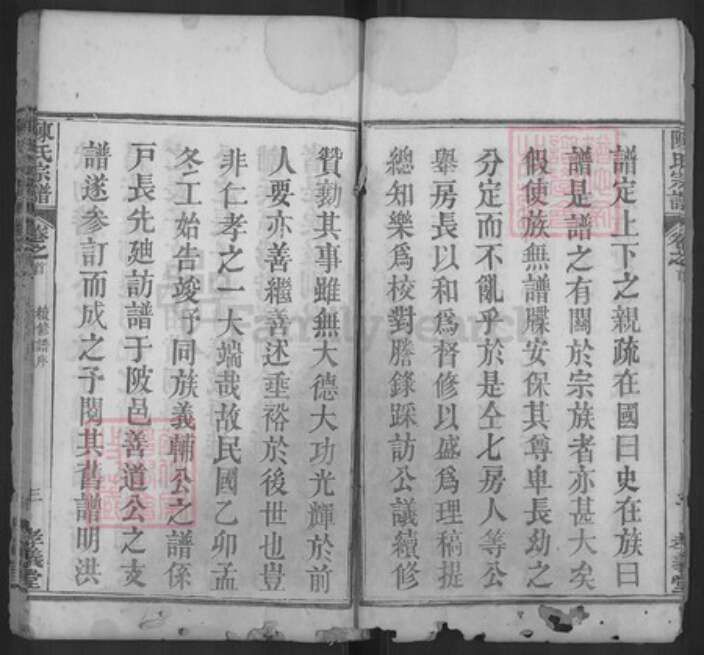 陳氏宗譜 卷之首
譜定上下之親疏在國曰史在族曰
譜是譜之有關於宗族者亦甚大矣
假使族無譜牒安保其尊卑長幼之
分定而不亂乎於是仝七房人等公
舉房長以和爲督修以盛爲理稿提
總知樂爲校對謄錄踩訪公議續修
贊勷其事雖無大德大功光輝於前
人要亦善繼善述垂裕於後世也豈
非仁孝之一大端哉故民國乙卯孟
冬工始告竣予同族義輔公之譜係
戸長先廸訪譜于陂邑善道公之支
譜遂參訂而成之予閱其舊譜明洪
陳氏宗譜 卷之首 續修譜序 三 孝義堂
FamilySearch